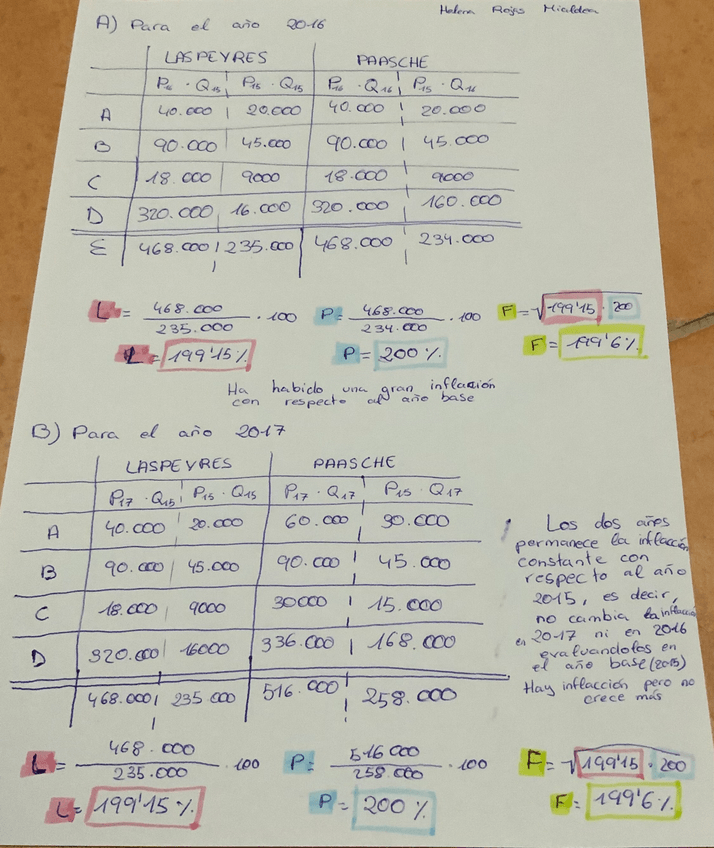 Helena Rojas Mialdea
A) Para el año 2016
LASPEYRES PAASCHE
P16 · Q15 P15 · Q15 P16 · Q16 P15 · Q16
A 40.000 20.000 40.000 20.000
B 90.000 45.000 90.000 45.000
C 18.000 9000 18.000 9000
D 320.000 16.000 320.000 160.000
Σ 468.000 235.000 468.000 234.000
L = 468.000 / 235.000 · 100 P = 468.000 / 234.000 · 100 F = √199'15 · 200
L = 199'15 % P = 200 % F = 199'6 %
Ha habido una gran inflación
con respecto al año base
B) Para el año 2017
LASPEYRES PAASCHE
P17 · Q15 P15 · Q15 P17 · Q17 P15 · Q17
A 40.000 20.000 60.000 30.000
B 90.000 45.000 90.000 45.000
C 18.000 9000 30000 15.000
D 320.000 16000 336.000 168.000
468.000 235.000 516.000 258.000
Los dos años
permanece la inflacción
constante con
respecto al año
2015, es decir,
no cambia la inflacción
en 2017 ni en 2016
evaluandolos en
el año base (2015)
Hay inflacción pero no
crece más
L = 468.000 / 235.000 · 100 P = 516000 / 258.000 · 100 F = √199'15 · 200
L = 199'15 % P = 200 % F = 199'6 %